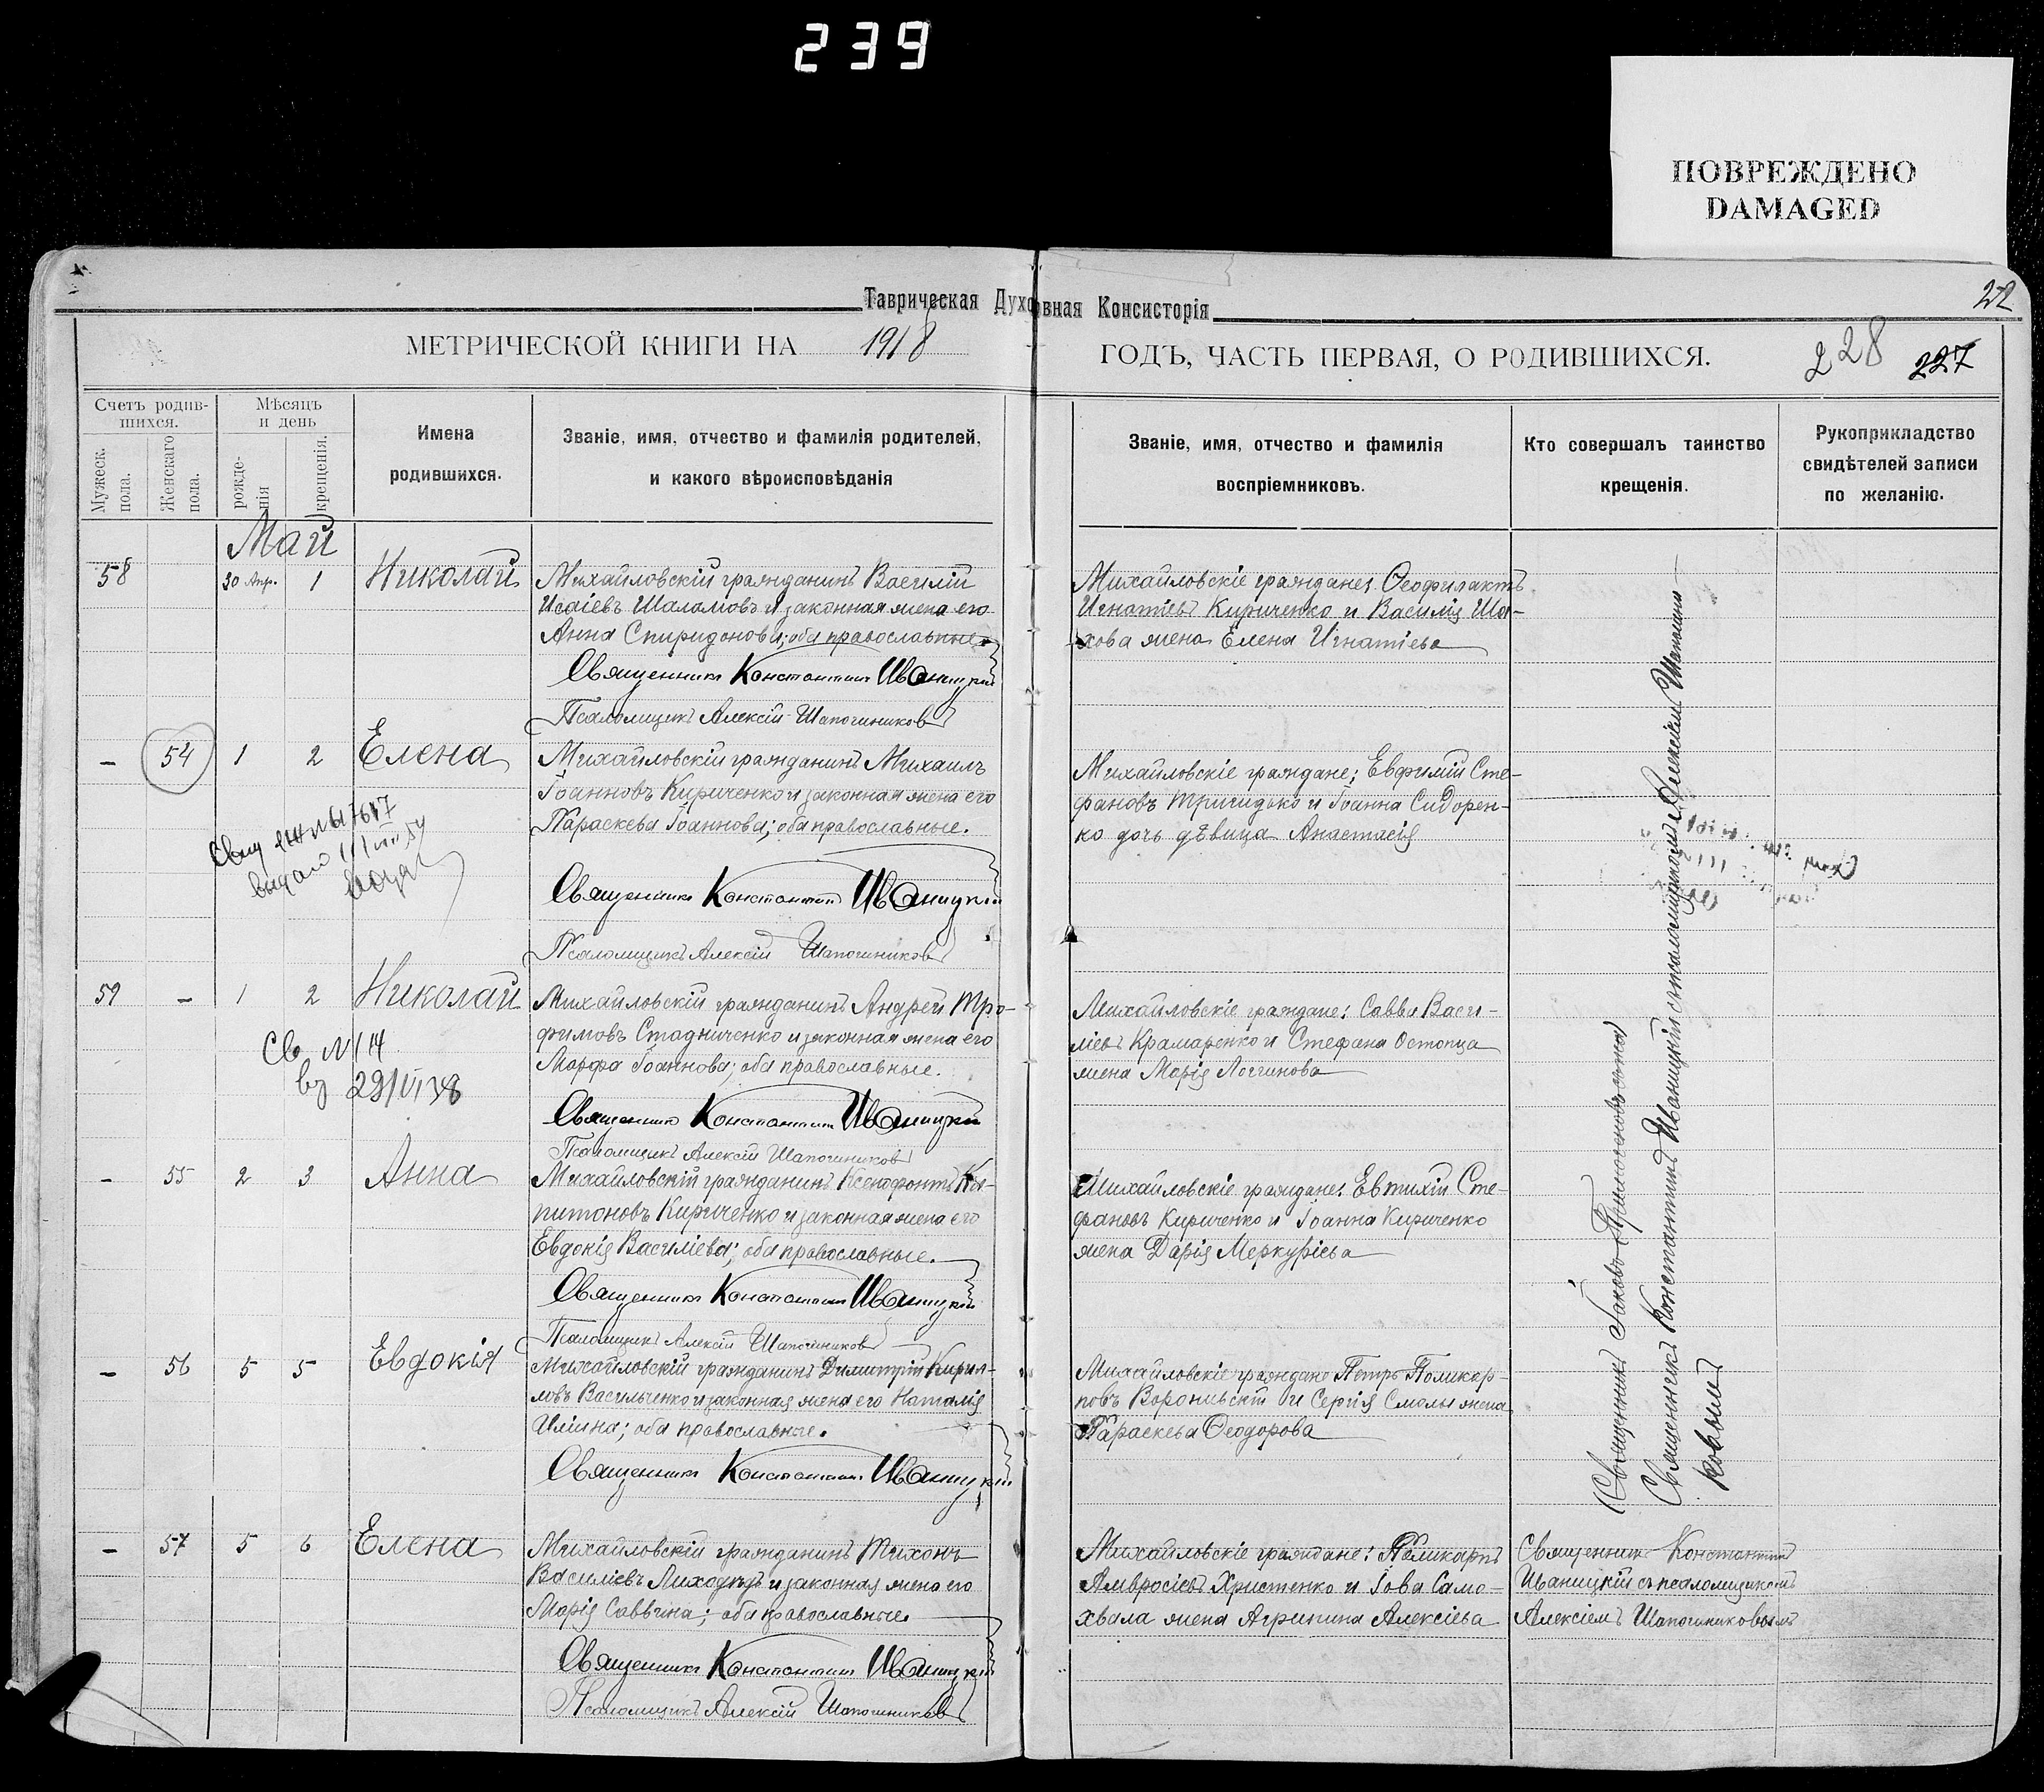 239
ПОВРЕЖДЕНО
DAMAGED
Таврическая Духовная Консисторія
22
МЕТРИЧЕСКОЙ КНИГИ НА 1918 ГОДЪ, ЧАСТЬ ПЕРВАЯ, О РОДИВШИХСЯ.
228 227
Счетъ родив-
шихся.
Мужеск. пола.
Женскаго пола.
Мѣсяцъ
и день
рожде-
нія
крещенія.
Имена
родившихся.
Званіе, имя, отчество и фамилія родителей,
и какого вѣроисповѣданія
Званіе, имя, отчество и фамилія
воспріемниковъ.
Кто совершалъ таинство
крещенія.
Рукоприкладство
свидѣтелей записи
по желанію.
Май
58 30 Апр. 1 Николай
Михайловскій гражданинъ Василій
Исаіевъ Шаламовъ и законная жена его
Анна Спиридонова; оба православные.
Священникъ Константинъ Иваницкій
Псаломщикъ Алексій Шапошниковъ
Михайловскіе граждане: Ѳеофилактъ
Игнатіевъ Кириченко и Василія Ша-
хова жена Елена Игнатіева
- 54 1 2 Елена
Михайловскій гражданинъ Михаилъ
Іоанновъ Кириченко и законная жена его
Параскева Іоаннова; оба православные.
Священникъ Константинъ Иваницкій
Псаломщикъ Алексій Шапошниковъ
Михайловскіе граждане; Евфимій Сте-
фановъ и Іоанна Сидорен-
ко дочь дѣвица Анастасія
59 - 1 2 Николай
Св N 14
29/VI 38
Михайловскій гражданинъ Андрей Тро-
фимовъ Стадниченко и законная жена его
Марфа Іоаннова; оба православные.
Священникъ Константинъ Иваницкій
Псаломщикъ Алексій Шапошниковъ
Михайловскіе граждане: Савва Васи-
ліевъ Крамаренко и Стефана Остопца
жена Марія Логгинова
- 55 2 3 Анна
Михайловскій гражданинъ Ксенофонтъ Ка-
питоновъ Кириченко и законная жена его
Евдокія Василіева; оба православные.
Священникъ Константинъ Иваницкій
Псаломщикъ Алексій Шапошниковъ
Михайловскіе граждане: Евтихій Сте-
фановъ Кириченко и Іоанна Кириченко
жена Дарія Меркуріева
- 56 5 5 Евдокія
Михайловскій гражданинъ Димитрій Кирил-
ловъ Васильченко и законная жена его Наталія
Иліина; оба православные.
Священникъ Константинъ Иваницкій
Михайловскіе граждане Петръ Поликар-
повъ и Сергія Смолы жена
Параскева Ѳеодорова
Священникъ Іаковъ
Священникъ Константинъ Иваницкій съ псаломщикомъ Алексіемъ Шапошни-
ковымъ
- 57 5 6 Елена
Михайловскій гражданинъ Тихонъ
Василіевъ Лиходѣдъ и законная жена его
Марія Саввина; оба православные.
Священникъ Константинъ Иваницкій
Псаломщикъ Алексій Шапошниковъ
Михайловскіе граждане: Поликарпъ
Амвросіевъ Христенко и Іова Само-
хвала жена Агрипина Алексіева
Священникъ Константинъ
Иваницкій съ псаломщикомъ
Алексіемъ Шапошниковымъ